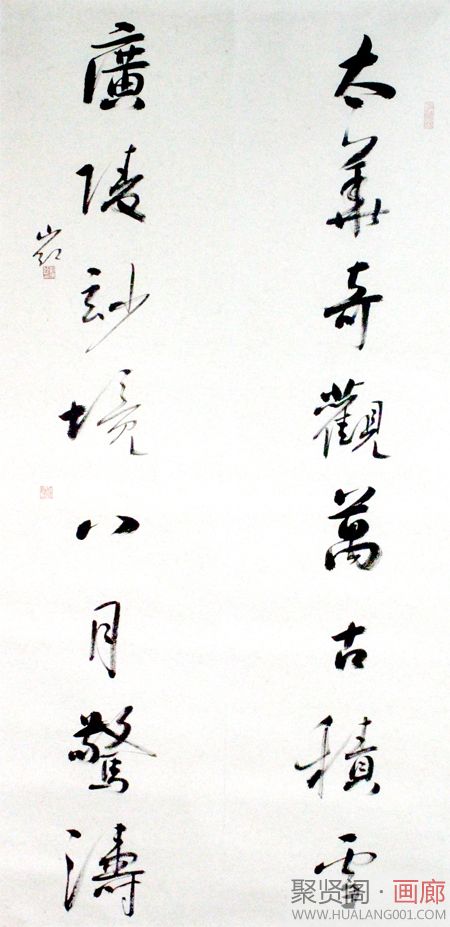 太華奇觀萬古積雪
廣陵玅境八月驚濤
聚贤阁·画廊
WWW.HUALANG001.COM